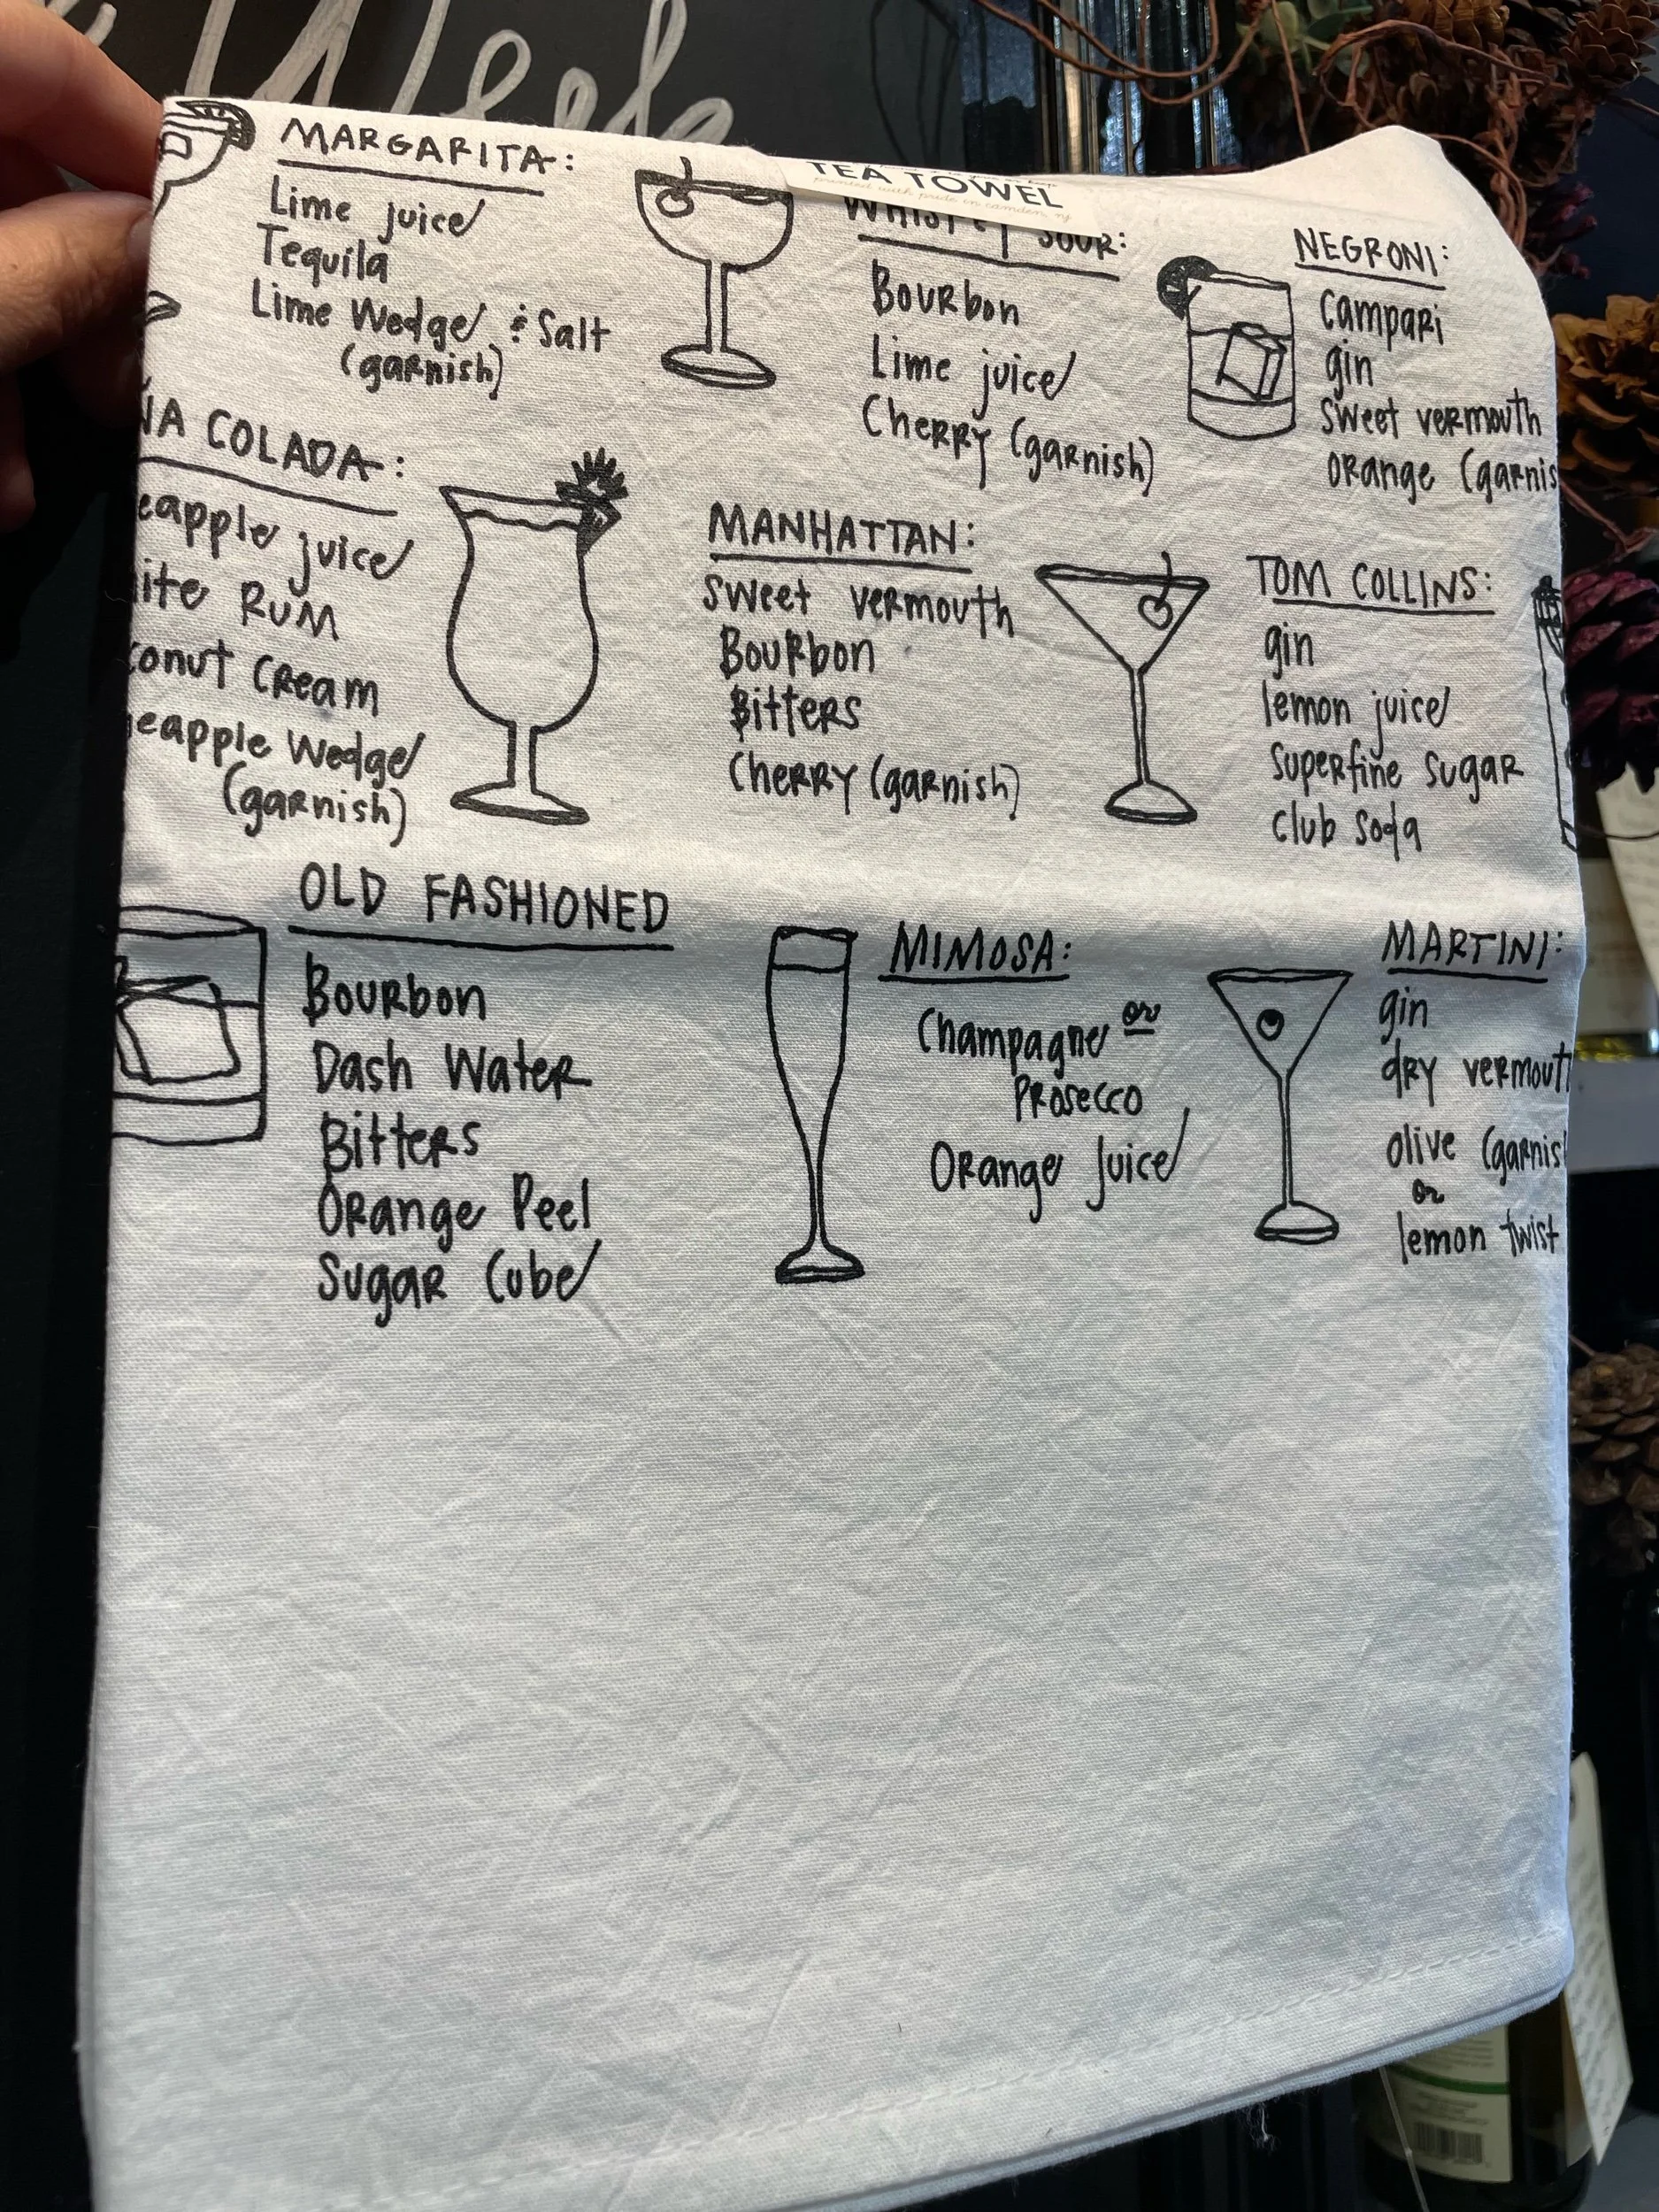 MARGARITA:
Lime juice
Tequila
Lime Wedge & Salt
(garnish)
TEA TOWEL
printed with pride in camden, nj
SOUR:
Bourbon
Lime juice
Cherry (garnish)
NEGRONI:
Campari
gin
sweet vermouth
orange (garnis
ÑA COLADA:
eapple juice
ite Rum
conut Cream
eapple Wedge
(garnish)
MANHATTAN:
sweet vermouth
Bourbon
Bitters
Cherry (garnish)
TOM COLLINS:
gin
lemon juice
superfine sugar
club soda
OLD FASHIONED
Bourbon
Dash Water
Bitters
Orange Peel
Sugar Cube
MIMOSA:
Champagne or
Prosecco
Orange Juice
MARTINI:
gin
dry vermout
olive (garnis
or
lemon twist